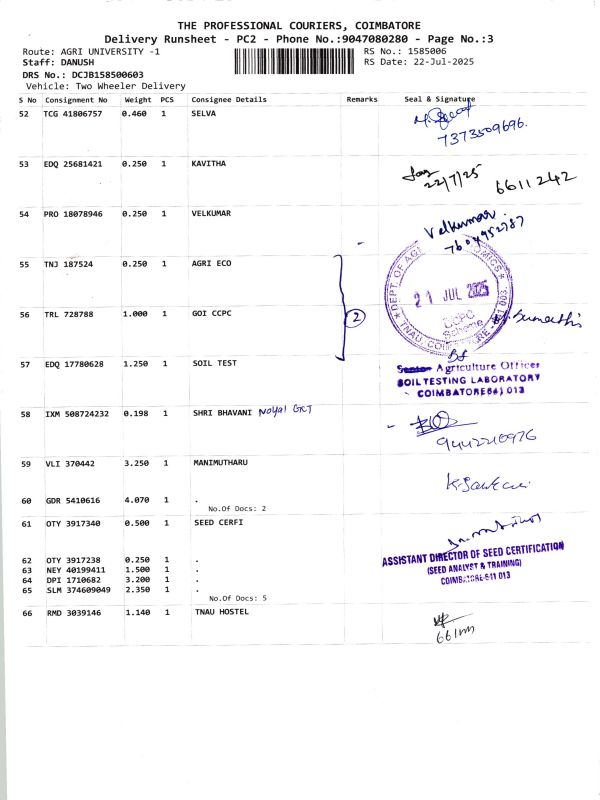 THE PROFESSIONAL COURIERS, COIMBATORE
Delivery Runsheet - PC2 - Phone No.:9047080280 - Page No.:3
Route: AGRI UNIVERSITY -1
RS No.: 1585006
Staff: DANUSH
RS Date: 22-Jul-2025
DRS No.: DCJB158500603
Vehicle: Two Wheeler Delivery
S No Consignment No Weight PCS Consignee Details Remarks Seal & Signature
52 TCG 41806757 0.460 1 SELVA
7373509696.
53 EDQ 25681421 0.250 1 KAVITHA
22/7/25 6611242
54 PRO 18078946 0.250 1 VELKUMAR
Velkumar
7604952787
55 TNJ 187524 0.250 1 AGRI ECO
DEPT. OF
21 JUL 2025
56 TRL 728788 1.000 1 GOI CCPC 2
CCPC
Scheme
TNAU,
57 EDQ 17780628 1.250 1 SOIL TEST
Senior Agriculture Officer
SOIL TESTING LABORATORY
COIMBATORE 641 013
58 IXM 508724232 0.198 1 SHRI BHAVANI Noyal GKT
9442210976
59 VLI 370442 3.250 1 MANIMUTHARU
60 GDR 5410616 4.070 1 .
No.Of Docs: 2
61 OTY 3917340 0.500 1 SEED CERFI
ASSISTANT DIRECTOR OF SEED CERTIFICATION
(SEED ANALYST & TRAINING)
COIMBATORE-641 013
62 OTY 3917238 0.250 1 .
63 NEY 40199411 1.500 1 .
64 DPI 1710682 3.200 1 .
65 SLM 374609049 2.350 1 .
No.Of Docs: 5
66 RMD 3039146 1.140 1 TNAU HOSTEL